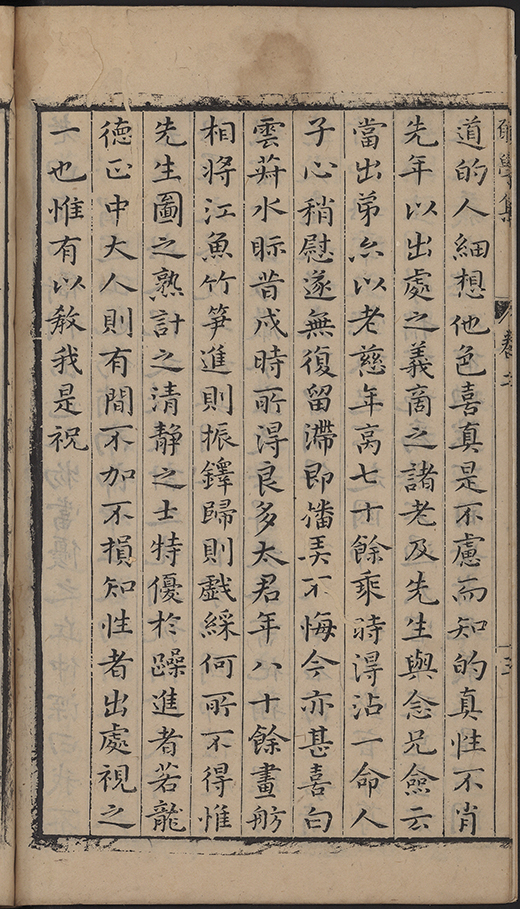 學集
卷之
道的人細想他色喜真是不慮而知的真性不肖
先年以出處之義商之諸老及先生與念兄僉云
當出弟亦以老慈年高七十餘乘時得沾一命人
子心稍慰遂無復留滯即播弄不悔今亦甚喜白
雲莊水眎昔戍時所得良多太君年八十餘畫舫
相將江魚竹笋進則振鐸歸則戯綵何所不得惟
先生圖之熟計之清靜之士特優於躁進者若龍
德正中大人則有間不加不損知性者出處視之
一也惟有以敎我是祝